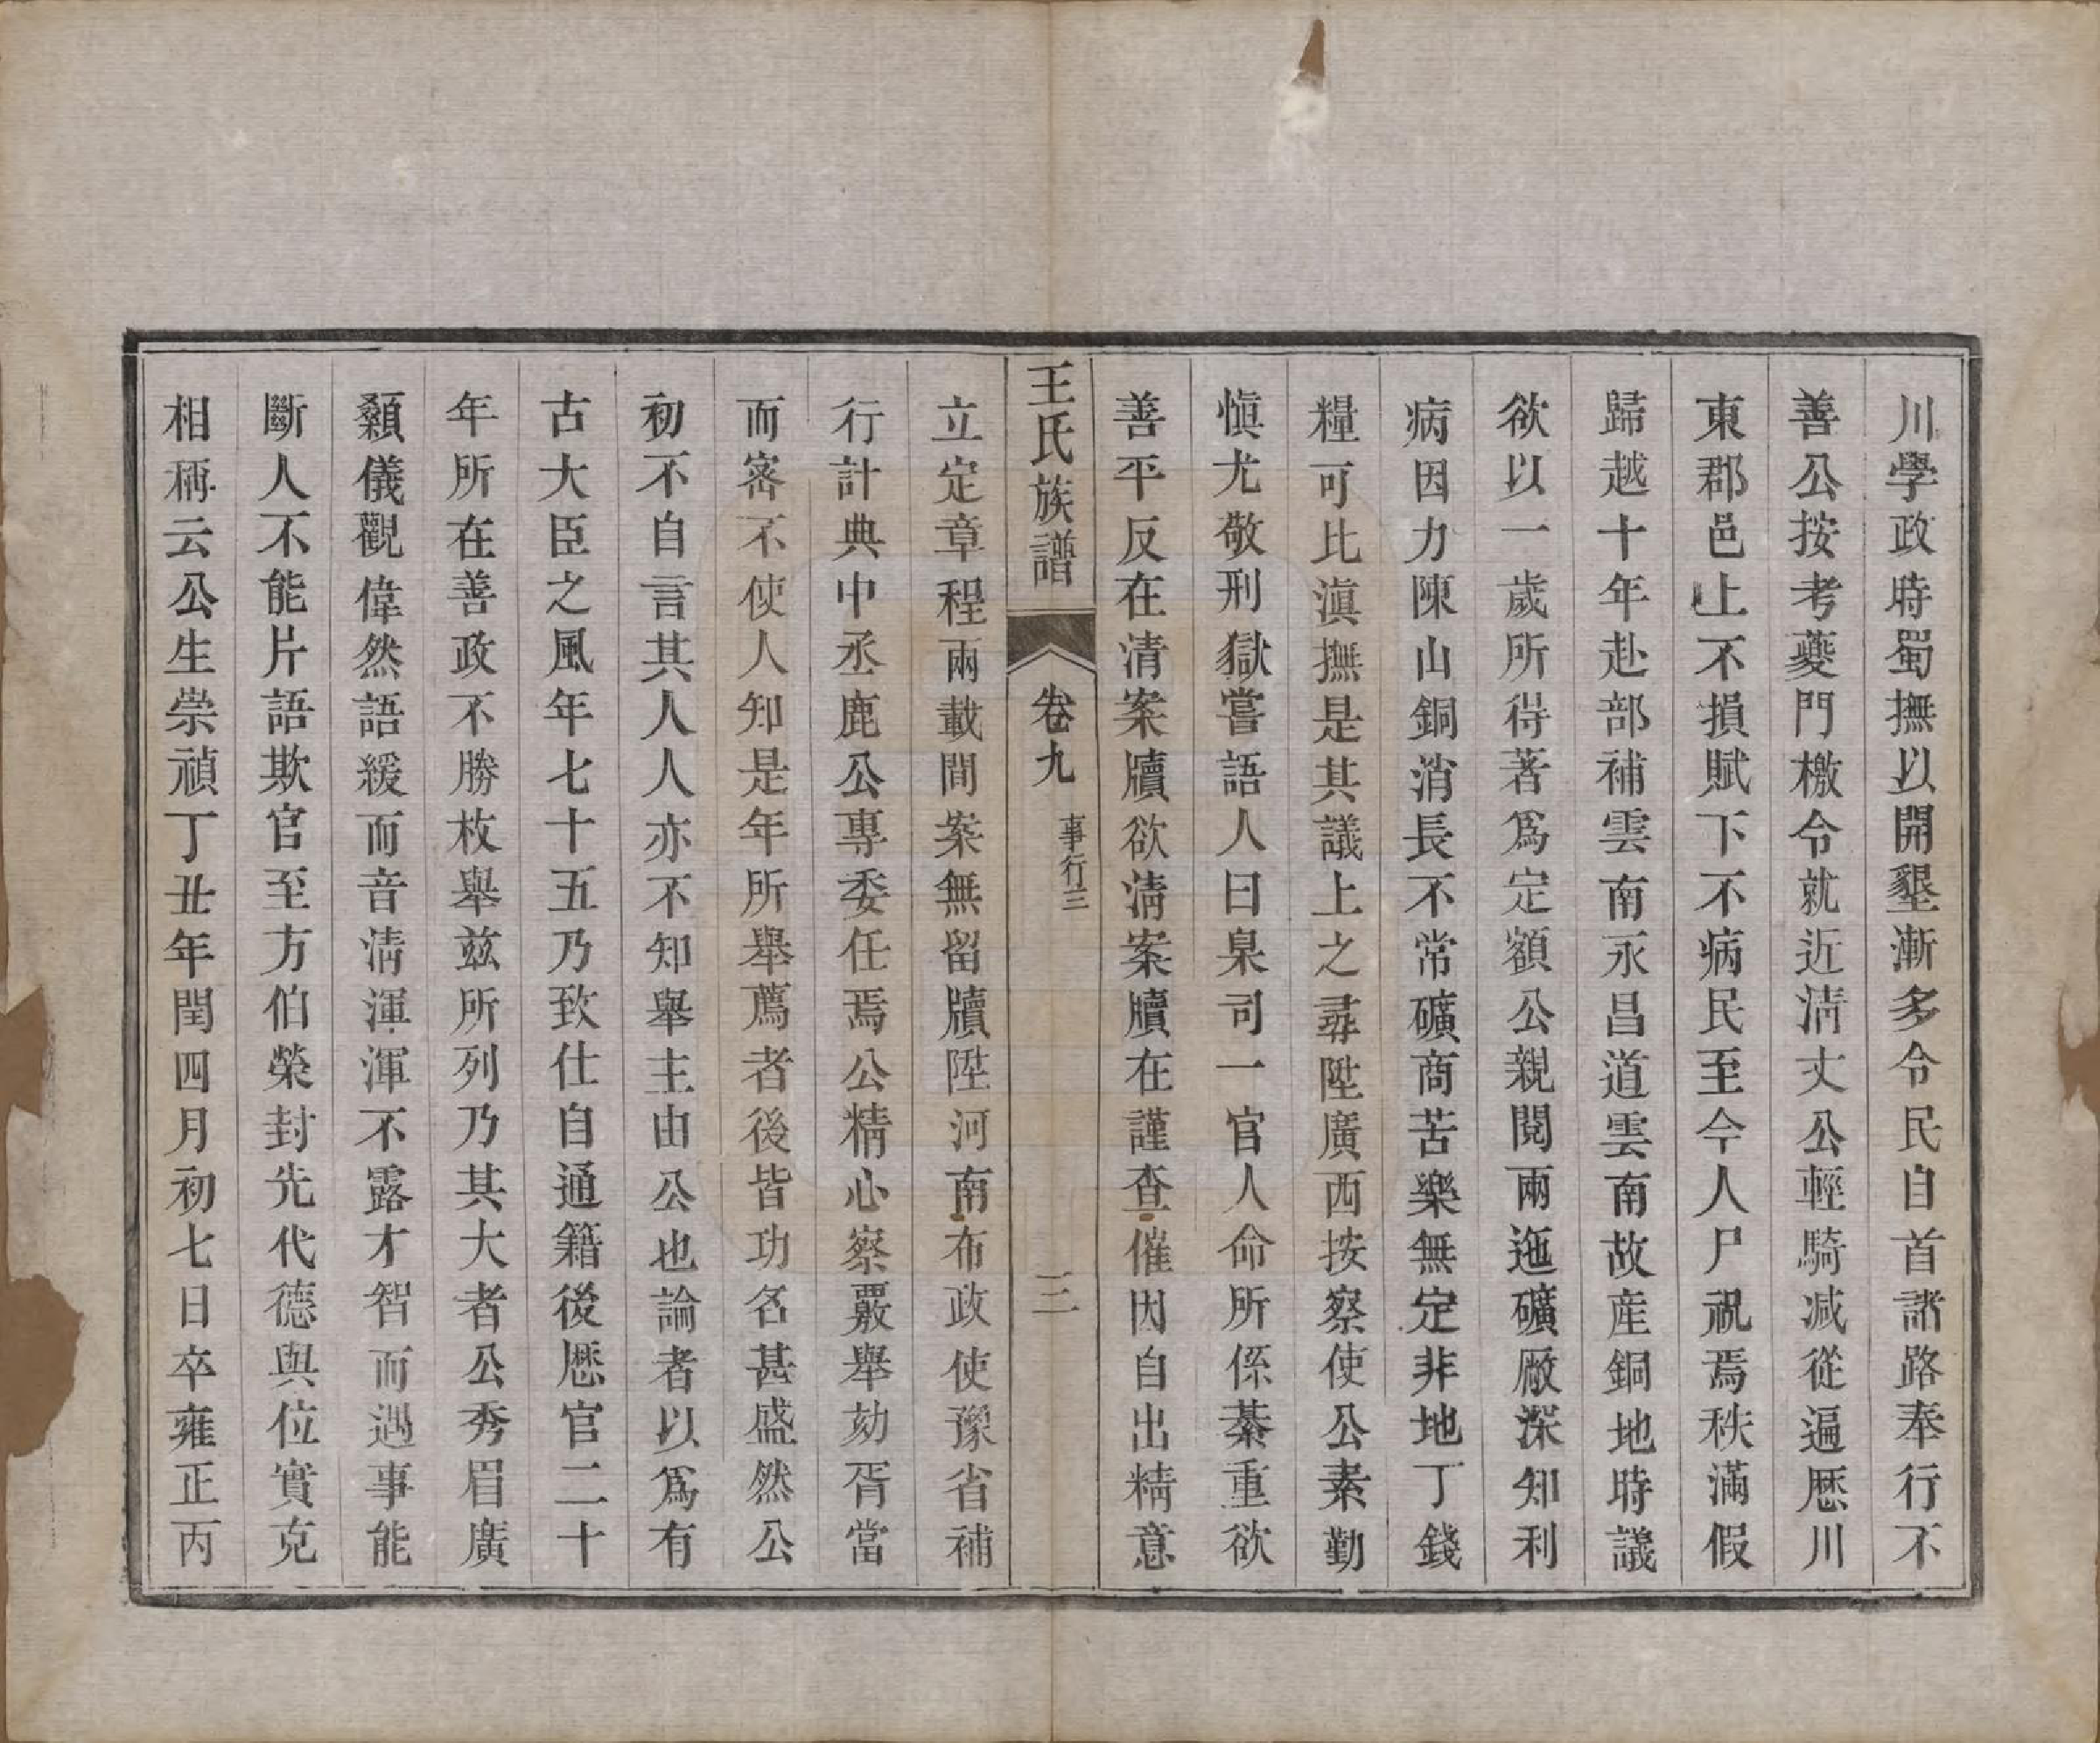 川學政時蜀撫以開墾漸多令民自首諸路奉行不
善公按考夔門檄令就近淸丈公輕騎減從遍歷川
東郡邑上不損賦下不病民至今人尸祝焉秩滿假
歸越十年赴部補雲南永昌道雲南故產銅地時議
欲以一歲所得著爲定額公親閱兩迤礦厰深知利
病因力陳山銅消長不常礦商苦樂無定非地丁錢
糧可比滇撫是其議上之尋陞廣西按察使公素勤
愼尤敬刑獄嘗語人曰臬司一官人命所係綦重欲
善平反在清案牘欲淸案牘在謹查催因自出精意
王氏族譜 卷九 事行三 三
立定章程兩載間案無留牘陞河南布政使豫省補
行計典中丞鹿公專委任焉公精心察覈舉劾胥當
而密不使人知是年所舉薦者後皆功名甚盛然公
初不自言其人人亦不知舉主由公也論者以爲有
古大臣之風年七十五乃致仕自通籍後歷官二十
年所在善政不勝枚舉兹所列乃其大者公秀眉廣
顙儀觀偉然語緩而音淸渾渾不露才智而遇事能
斷人不能片語欺官至方伯榮封先代德與位實克
相稱云公生崇禎丁丑年閏四月初七日卒雍正丙